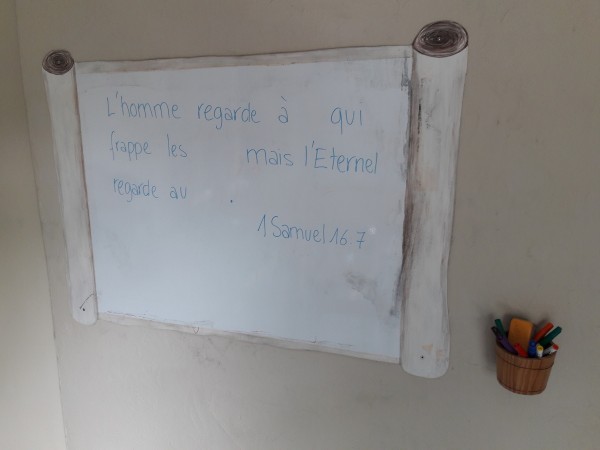 L'homme regarde à qui
frappe les mais l'Eternel
regarde au
1 Samuel 16.7